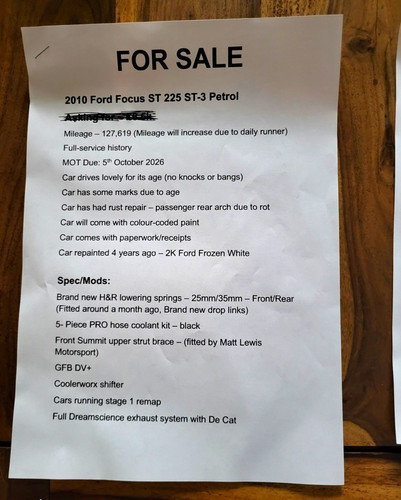 FOR SALE
2010 Ford Focus ST 225 ST-3 Petrol
Asking for
Mileage – 127,619 (Mileage will increase due to daily runner)
Full-service history
MOT Due: 5th October 2026
Car drives lovely for its age (no knocks or bangs)
Car has some marks due to age
Car has had rust repair – passenger rear arch due to rot
Car will come with colour-coded paint
Car comes with paperwork/receipts
Car repainted 4 years ago – 2K Ford Frozen White
Spec/Mods:
Brand new H&R lowering springs – 25mm/35mm – Front/Rear
(Fitted around a month ago, Brand new drop links)
5- Piece PRO hose coolant kit – black
Front Summit upper strut brace – (fitted by Matt Lewis
Motorsport)
GFB DV+
Coolerworx shifter
Cars running stage 1 remap
Full Dreamscience exhaust system with De Cat